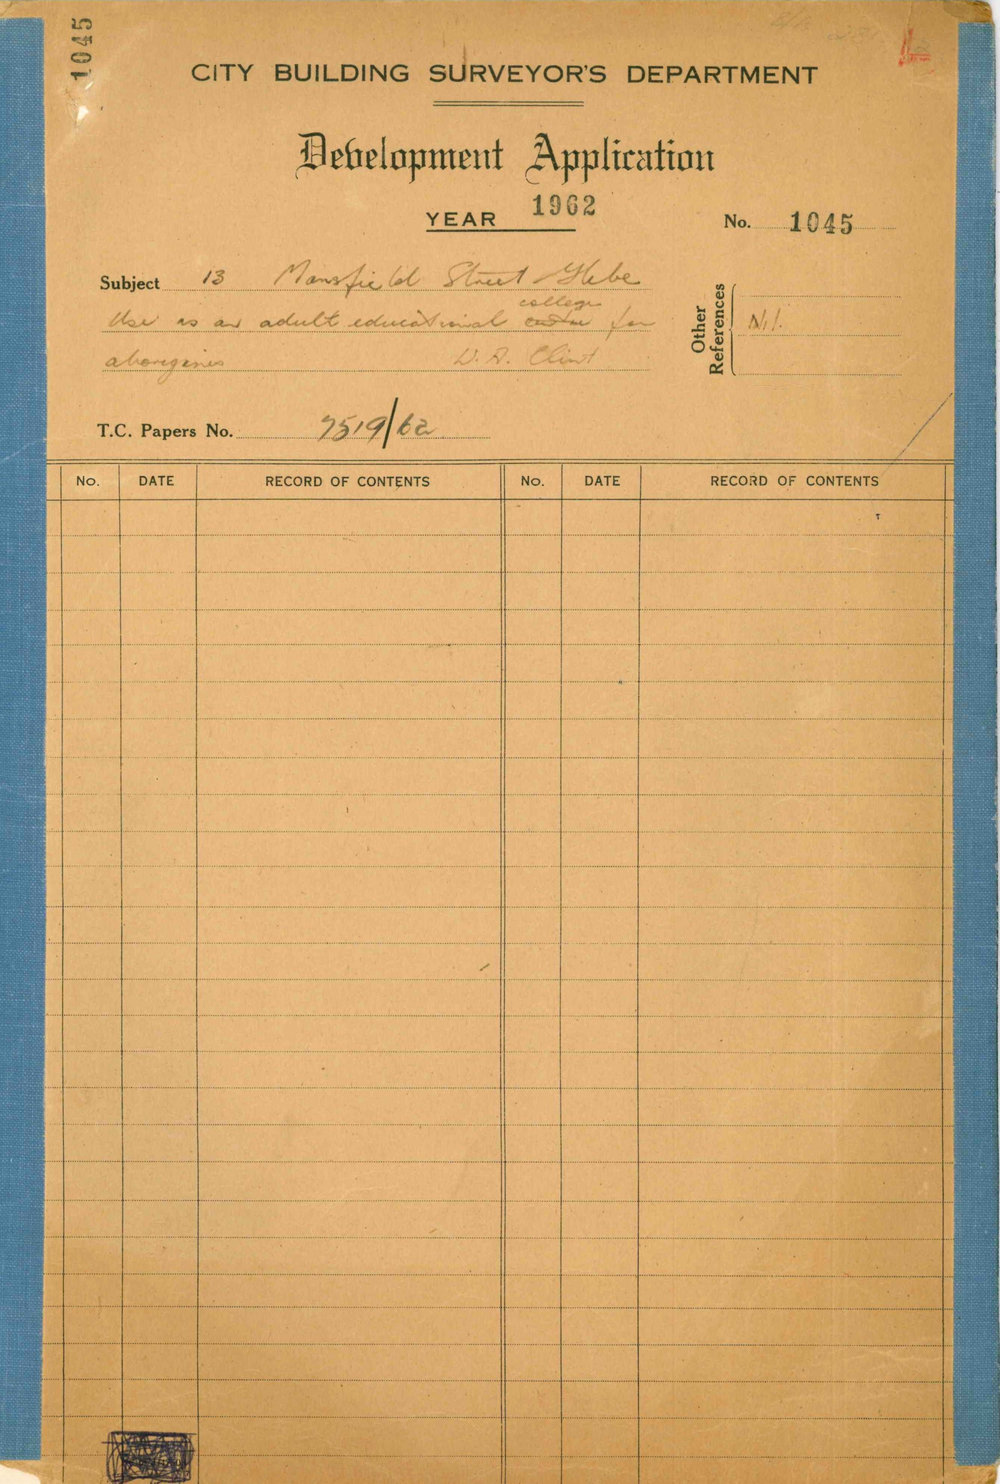 1045
CITY BUILDING SURVEYOR'S DEPARTMENT
Development Application
YEAR 1962
No. 1045
Subject 13 Mansfield Street Glebe
college
Use as an adult educational centre for
aborigines
Other References Nil.
T.C. Papers No. 7519/62
No. DATE RECORD OF CONTENTS No. DATE RECORD OF CONTENTS